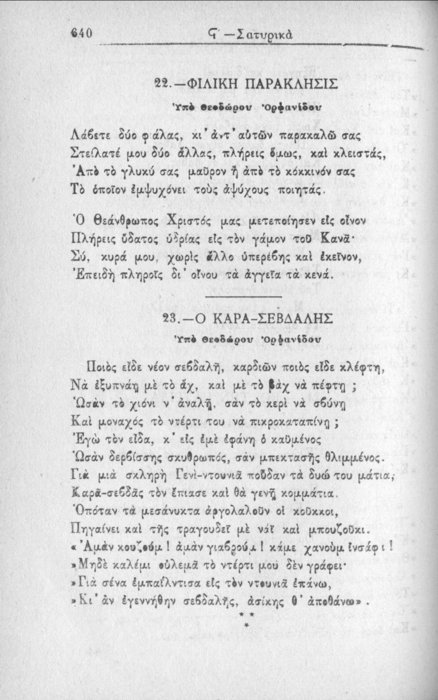 640
Ϛ′ —Σατυρικὰ
22.—ΦΙΛΙΚΗ ΠΑΡΑΚΛΗΣΙΣ
Ὑπὸ Θεοδώρου Ὀρφανίδου
Λάβετε δύο φιάλας, κι' ἀντ' αὐτῶν παρακαλῶ σας
Στείλατέ μου δύο ἄλλας, πλήρεις ὅμως, καὶ κλειστάς,
Ἀπὸ τὸ γλυκύ σας μαῦρον ἢ ἀπὸ τὸ κόκκινόν σας
Τὸ ὁποῖον ἐμψυχόνει τοὺς ἀψύχους ποιητάς.
Ὁ Θεάνθρωπος Χριστός μας μετεποίησεν εἰς οἶνον
Πλήρεις ὕδατος ὑδρίας εἰς τὸν γάμον τοῦ Κανᾶ·
Σύ, κυρά μου, χωρὶς ἄλλο ὑπερέβης καὶ ἐκεῖνον,
Ἐπειδὴ πληροῖς δι' οἴνου τὰ ἀγγεῖα τὰ κενά.
23.—Ο ΚΑΡΑ-ΣΕΒΔΑΛΗΣ
Ὑπὸ Θεοδώρου Ὀρφανίδου
Ποιὸς εἶδε νέον σεβδαλῆ, καρδιῶν ποιὸς εἶδε κλέφτη,
Νὰ ἐξυπνάῃ μὲ τὸ ἄχ, καὶ μὲ τὸ βὰχ νὰ πέφτῃ ;
Ὡσὰν τὸ χιόνι ν' ἀναλῇ, σὰν τὸ κερὶ νὰ σβύνῃ
Καὶ μοναχὸς τὸ ντέρτι του νὰ πικροκαταπίνῃ ;
Ἐγὼ τὸν εἶδα, κ' εἰς ἐμὲ ἐφάνη ὁ καϋμένος
Ὡσὰν δερβίσσης σκυθρωπός, σὰν μπεκτασῆς θλιμμένος.
Γιὰ μιὰ σκληρὴ Γενὶ-ντουνιᾶ ποῦδαν τὰ δυώ του μάτια,
Καρᾶ-σεβδᾶς τὸν ἔπιασε καὶ θὰ γενῇ κομμάτια.
Ὁπόταν τὰ μεσάνυκτα ἀργολαλοῦν οἱ κοῦκκοι,
Πηγαίνει καὶ τῆς τραγουδεῖ μὲ νάϊ καὶ μπουζοῦκι.
« Ἀμὰν κουζοῦμ ! ἀμὰν γιαβροῦμ ! κάμε χανοὺμ ἰνσάφι !
»Μηδὲ καλέμι οὐλεμᾶ τὸ ντέρτι μου δὲν γράφει·
»Γιὰ σένα ἐμπαΐλντισα εἰς τὸν ντουνιᾶ ἐπάνω,
»Κι' ἂν ἐγεννήθην σεβδαλῆς, ἀσίκης θ' ἀποθάνω» .
* *
*